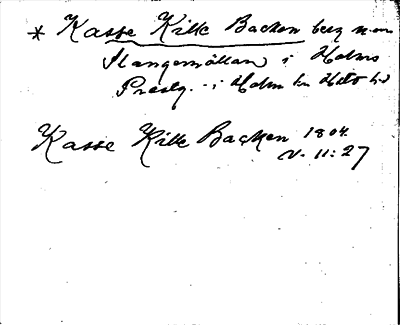 * Kasse Kille Backen berg mn
Slangemöllan i Holms
Prestg. i Holm
Kasse Kille Backen 1804
v. 11:27